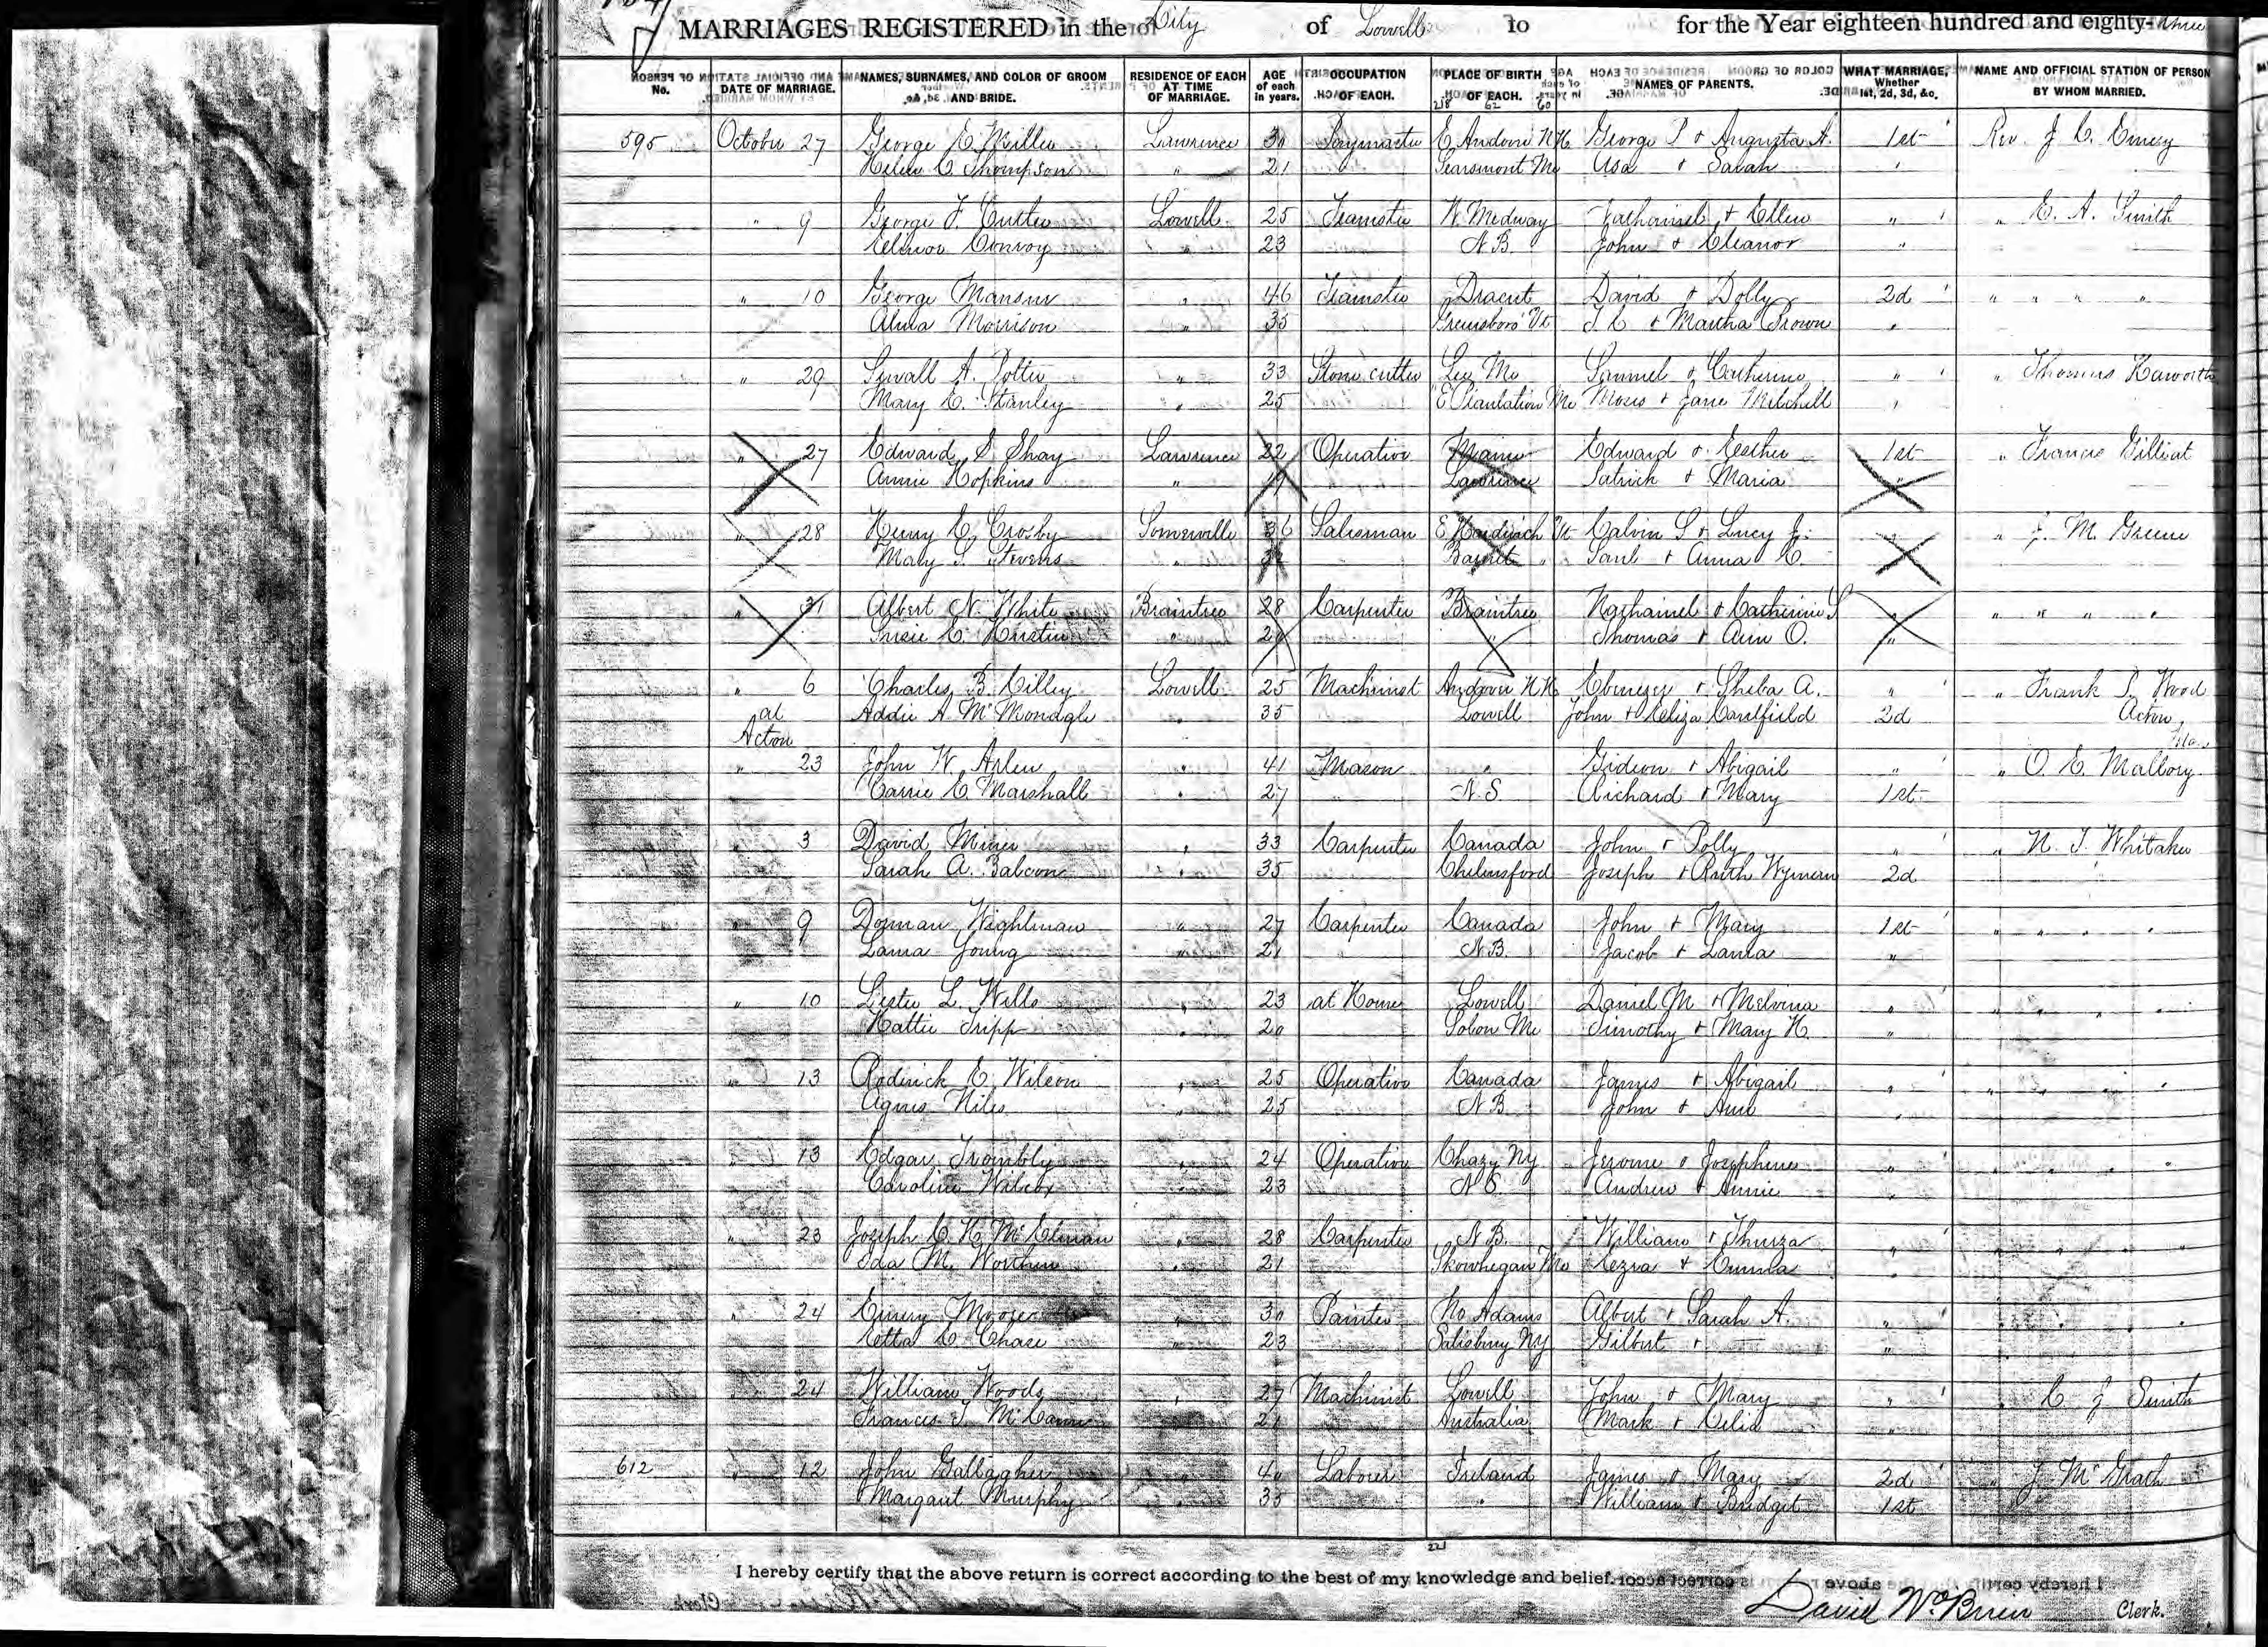 MARRIAGES REGISTERED in the City of Lowell for the Year eighteen hundred and eighty-three
No. DATE OF MARRIAGE. NAMES, SURNAMES, AND COLOR OF GROOM AND BRIDE. RESIDENCE OF EACH AT TIME OF MARRIAGE. AGE of each in years. OCCUPATION OF EACH. PLACE OF BIRTH OF EACH. NAMES OF PARENTS. WHAT MARRIAGE, Whether 1st, 2d, 3d, &c. NAME AND OFFICIAL STATION OF PERSON BY WHOM MARRIED.
218 62 60
595 October 27 George E. Miller Lawrence 30 Paymaster E Andover N H George P & Augusta A. 1st Rev. J. C. Emery
Helen C. Thompson " 21 Searsmont Me Asa & Sarah "
" 9 George F. Cutler Lowell 25 Teamster W. Medway Nathaniel & Ellen " " E. A. Smith
Elinor Conroy " 23 N B. John & Eleanor "
" 10 George Mansur " 46 Teamster Dracut David & Dolly 2d " " " "
Alma Morrison " 35 Greensboro Vt & Martha Brown "
" 29 Sewall A. Potter " 33 Stone cutter Lee Me Samuel & Catherine " " Thomas Haworth
Mary E. Stanley " 25 E Plantation Me Moses & Jane Mitchell "
" 27 Edward S. Shay Lawrence 22 Operative Maine Edward & Esther 1st " Francis Gilliat
Annie Hopkins " 19 Lawrence Patrick & Maria "
" 28 Henry E. Crosby Somerville 36 Salesman E Hardwick Vt Calvin S & Lucy J. " " J. M. Greene
Mary S. Stevens " Barnet " & Anna C.
" 31 Albert N. White Braintree 28 Carpenter Braintree Nathaniel & Catherine S " " " " "
Susie C. " " Thomas & Ann O. "
" 6 Charles B. Cilley Lowell 25 Machinist Andover N H Ebenezer & Sheba A. " " Frank P. Wood
at Addie A McMonagle " 35 Lowell John & Eliza Caulfield 2d Acton,
Acton Mass
" 23 John W. Arlen " 41 Mason " Gideon & Abigail " " O. E. Mallory
Carrie E. Marshall " 27 N. S. Richard & Mary 1st
" 3 David Miner " 33 Carpenter Canada John & Polly " " N. T. Whitaker
Sarah A. Balcom " 35 Chelmsford Joseph & Ruth Wyman 2d
" 9 Dorman Wightman " 27 Carpenter Canada John & Mary 1st " " " "
Laura Young " 21 N.B. Jacob & Laura "
" 10 Lester L. Wills " 23 at Home Lowell Daniel M & Melvina " " " " "
Hattie Tripp " 20 Solon Me Timothy & Mary H. "
" 13 Rodrick E. Wilson " 25 Operative Canada James & Abigail " " " "
Agnes Niles " 25 N B John & Ann "
" 13 Edgar Trombly " 24 Operative Chazy NY Jerome & Josephine " " " " "
Caroline Wilcox " 23 N S. Andrew & Annie "
" 23 Joseph C. H. McElman " 28 Carpenter N B. William & Thurza " " " " "
Ida M. Worthen " 21 Skowhegan Me Ezra & Emma "
" 24 Emery Moore " 30 Painter No Adams Albert & Sarah A. " " " "
Etta C. Chase " 23 Salisbury NY Gilbert & — "
" 24 William Woods " 27 Machinist Lowell John & Mary " " C J Smith
Frances T. McCann " 21 Australia Mark & Celia "
612 " 12 John Gallagher " 40 Laborer Ireland James & Mary 2d " J McGrath
Margaret Murphy " 35 " William & Bridget 1st
221
I hereby certify that the above return is correct according to the best of my knowledge and belief.
David McBrien Clerk.